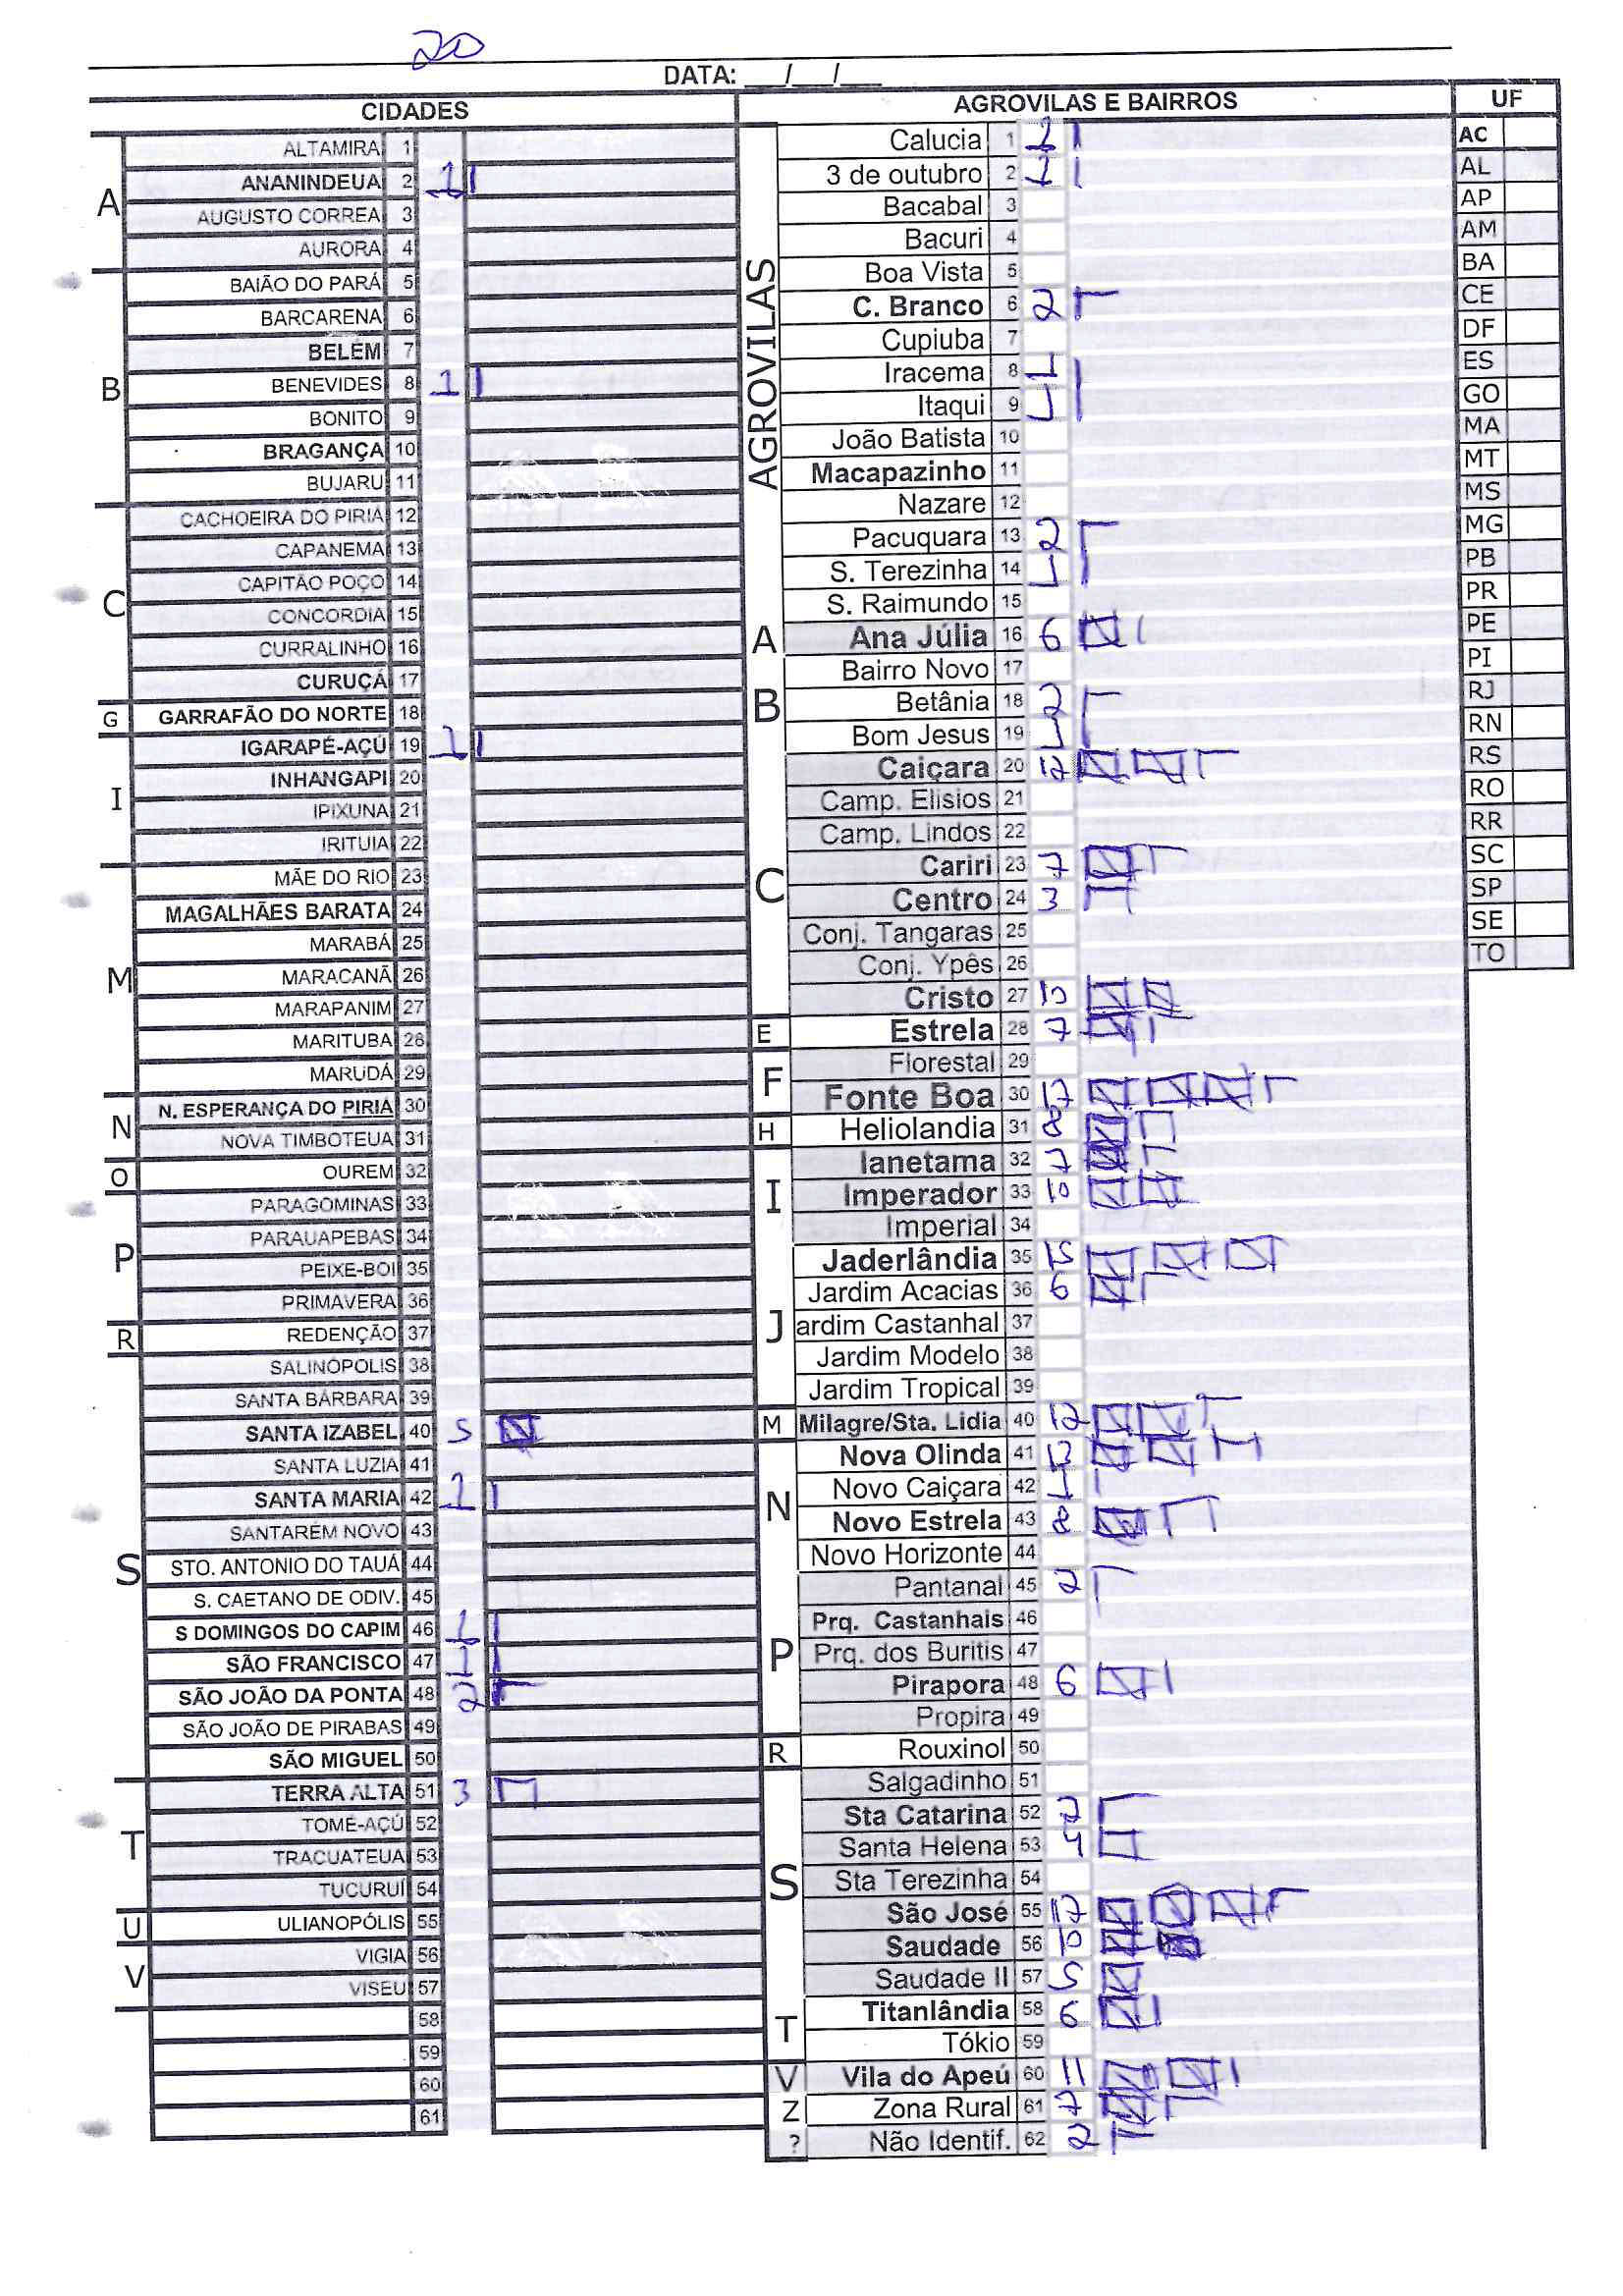 20
DATA: __/__/__
CIDADES
A
ALTAMIRA 1
ANANINDEUA 2 1
AUGUSTO CORREA 3
AURORA 4
B
BAIÃO DO PARÁ 5
BARCARENA 6
BELÉM 7
BENEVIDES 8 1
BONITO 9
BRAGANÇA 10
BUJARU 11
C
CACHOEIRA DO PIRIÁ 12
CAPANEMA 13
CAPITÃO POÇO 14
CONCORDIA 15
CURRALINHO 16
CURUÇÁ 17
G
GARRAFÃO DO NORTE 18
I
IGARAPÉ-AÇÚ 19 1
INHANGAPI 20
IPIXUNA 21
IRITUIA 22
M
MÃE DO RIO 23
MAGALHÃES BARATA 24
MARABÁ 25
MARACANÃ 26
MARAPANIM 27
MARITUBA 28
MARUDÁ 29
N
N. ESPERANÇA DO PIRIA 30
NOVA TIMBOTEUA 31
O
OUREM 32
P
PARAGOMINAS 33
PARAUAPEBAS 34
PEIXE-BOI 35
PRIMAVERA 36
R
REDENÇÃO 37
S
SALINÓPOLIS 38
SANTA BÁRBARA 39
SANTA IZABEL 40 5
SANTA LUZIA 41
SANTA MARIA 42 1
SANTARÉM NOVO 43
STO. ANTONIO DO TAUÁ 44
S. CAETANO DE ODIV. 45
S DOMINGOS DO CAPIM 46 1
SÃO FRANCISCO 47 1
SÃO JOÃO DA PONTA 48 2
SÃO JOÃO DE PIRABAS 49
SÃO MIGUEL 50
T
TERRA ALTA 51 3
TOMÉ-AÇÚ 52
TRACUATEUA 53
TUCURUÍ 54
U
ULIANOPÓLIS 55
V
VIGIA 56
VISEU 57
58
59
60
61
AGROVILAS E BAIRROS
AGROVILAS
Calucia 1 1
3 de outubro 2 1
Bacabal 3
Bacuri 4
Boa Vista 5
C. Branco 6 2
Cupiuba 7
Iracema 8 1
Itaqui 9 1
João Batista 10
Macapazinho 11
Nazare 12
Pacuquara 13 2
S. Terezinha 14 1
S. Raimundo 15
A
Ana Júlia 16 6
B
Bairro Novo 17
Betânia 18 2
Bom Jesus 19 1
C
Caiçara 20 12
Camp. Elisios 21
Camp. Lindos 22
Cariri 23 7
Centro 24 3
Conj. Tangaras 25
Conj. Ypês 26
Cristo 27 10
E
Estrela 28 7
F
Florestal 29
Fonte Boa 30 17
H
Heliolandia 31 8
I
Ianetama 32 7
Imperador 33 10
Imperial 34
J
Jaderlândia 35 15
Jardim Acacias 36 6
ardim Castanhal 37
Jardim Modelo 38
Jardim Tropical 39
M
Milagre/Sta. Lidia 40 12
N
Nova Olinda 41 13
Novo Caiçara 42 1
Novo Estrela 43 8
Novo Horizonte 44
P
Pantanal 45 2
Prq. Castanhais 46
Prq. dos Buritis 47
Pirapora 48 6
Propira 49
R
Rouxinol 50
S
Salgadinho 51
Sta Catarina 52 2
Santa Helena 53 4
Sta Terezinha 54
São José 55 17
Saudade 56 10
Saudade II 57 5
T
Titanlândia 58 6
Tókio 59
V
Vila do Apeú 60 11
Z
Zona Rural 61 7
?
Não Identif. 62 2
UF
AC
AL
AP
AM
BA
CE
DF
ES
GO
MA
MT
MS
MG
PB
PR
PE
PI
RJ
RN
RS
RO
RR
SC
SP
SE
TO